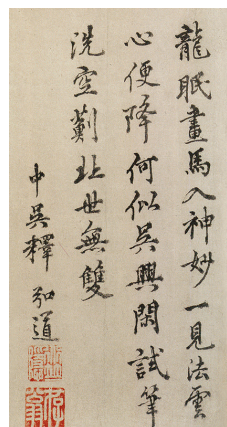 龍眠畫馬入神妙一見法雲
心便降何似吳興閑試筆
洗空薊北世無雙
中吳釋弘道